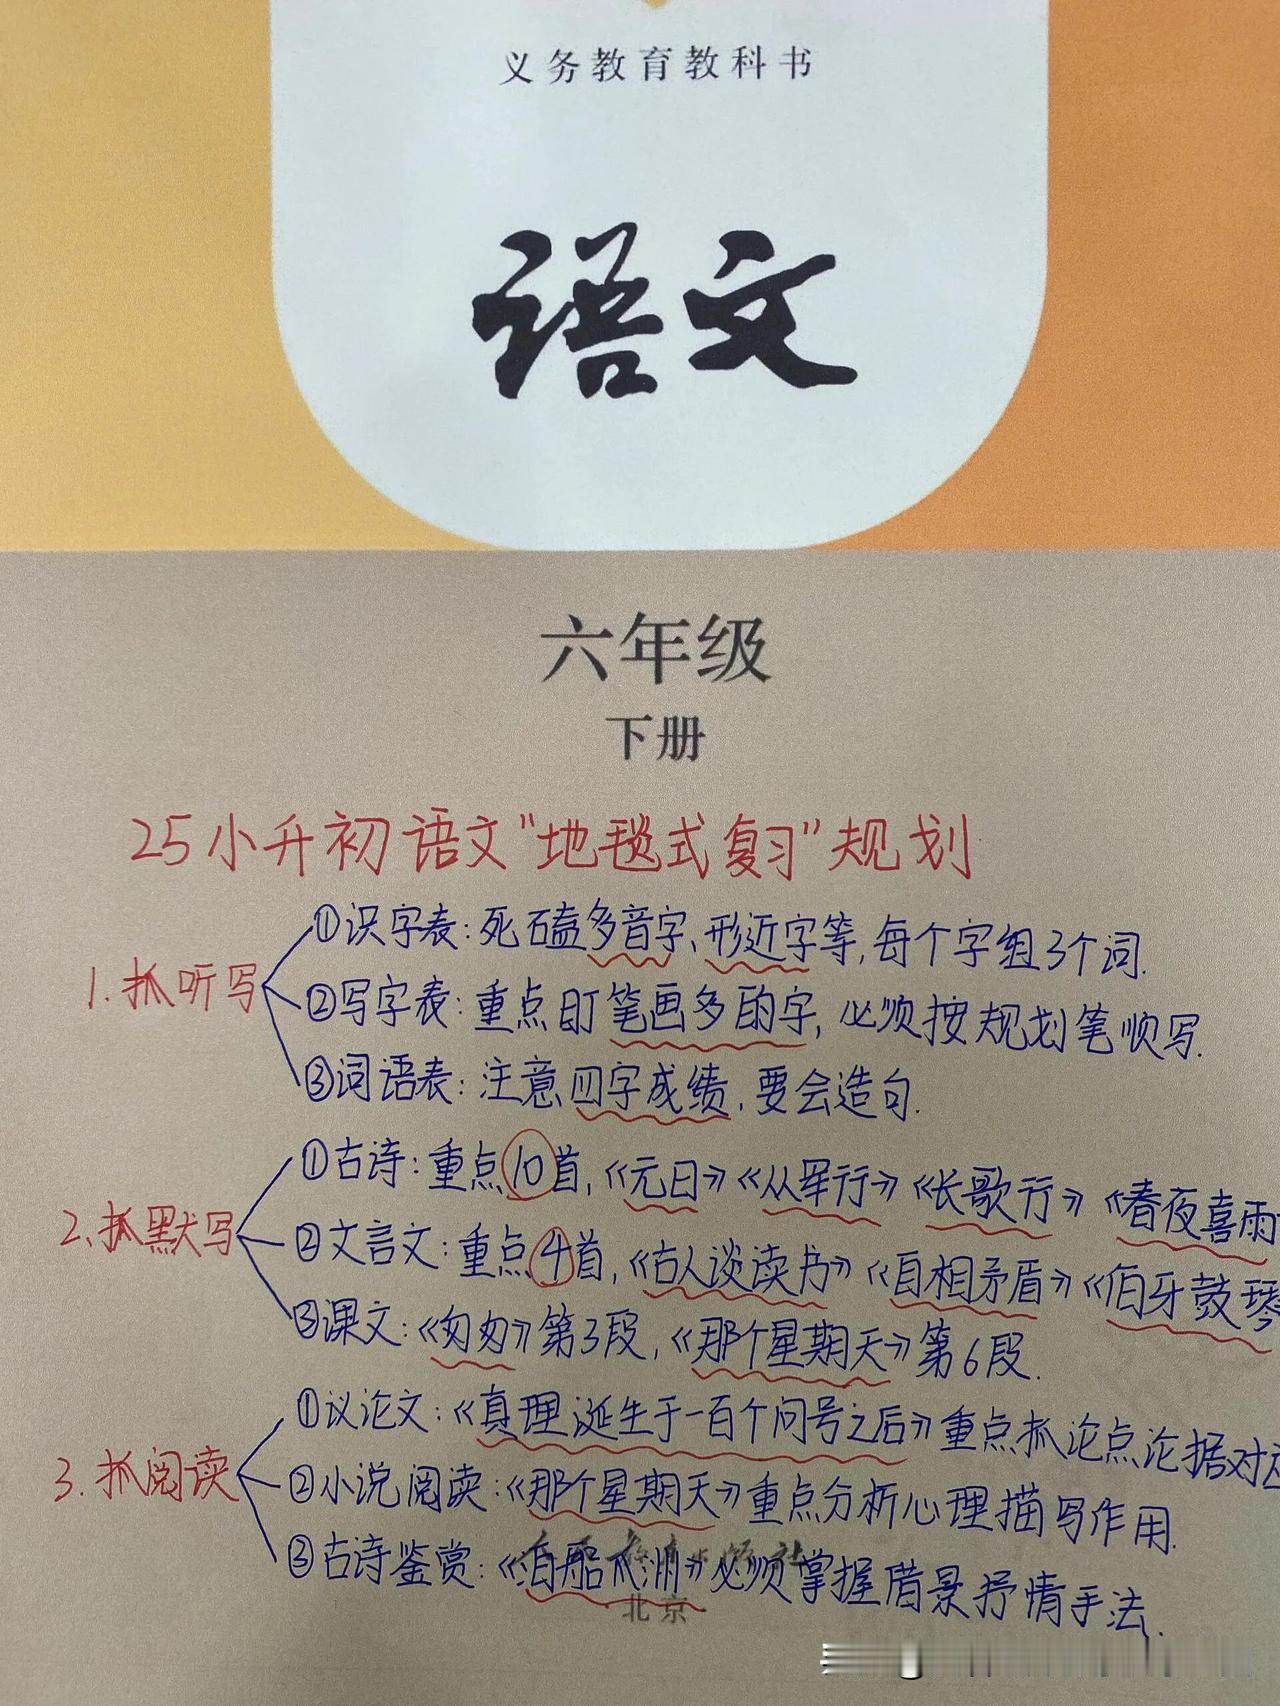 义务教育教科书
语文
六年级
下册
25小升初语文“地毯式复习”规划
1.抓听写
①识字表:死磕多音字、形近字等,每个字组3个词.
②写字表:重点盯笔画多的字,必须按规划笔顺写.
③词语表:注意四字成绩,要会造句.
2.抓默写
①古诗:重点10首,《元日》《从军行》《长歌行》《春夜喜雨
②文言文:重点4首,《古人谈读书》《自相矛盾》《伯牙鼓琴
③课文:《匆匆》第3段,《那个星期天》第6段.
3.抓阅读
①议论文:《真理诞生于一百个问号之后》重点抓论点论据对应
②小说阅读:《那个星期天》重点分析心理描写作用.
③古诗鉴赏:《泊船瓜洲》必须掌握借景抒情手法.
人民教育出版社
北京